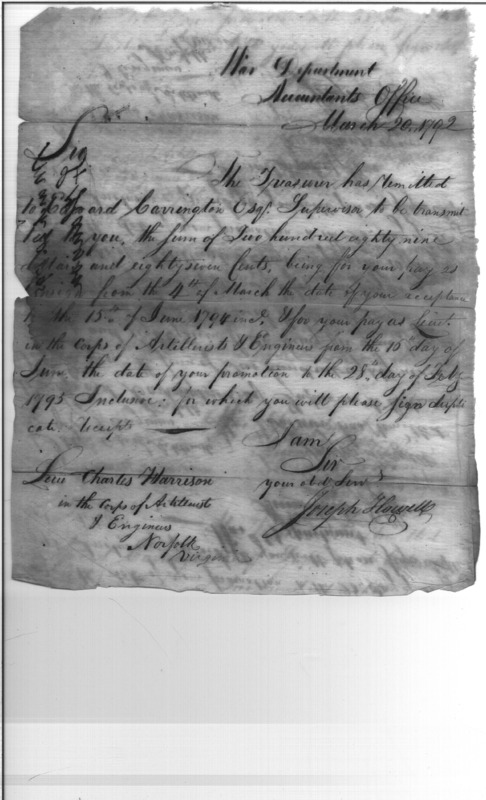 War Department
Accountants Office
March 20, 1792
Sir
The Treasurer has remitted
to Edward Carrington Esqr. Supervisor to be transmit
ted to you, the sum of Two hundred eighty nine
dollars and eighty seven Cents, being for your pay as
Ensign from the 4th of March the date of your acceptance
to the 15th of June 1794 incl. & for your pay as Lieut.
in the Corps of Artillerists & Engineers from the 16 day of
June, the date of your promotion to the 28th day of Feby
1795 Inclusive; for which you will please sign dupli
cate receipts
I am
Sir
your obt Servt
Joseph Howell
Lieu Charles Harrison
in the Corps of Artillerist
& Engineers
Norfolk
Virginia